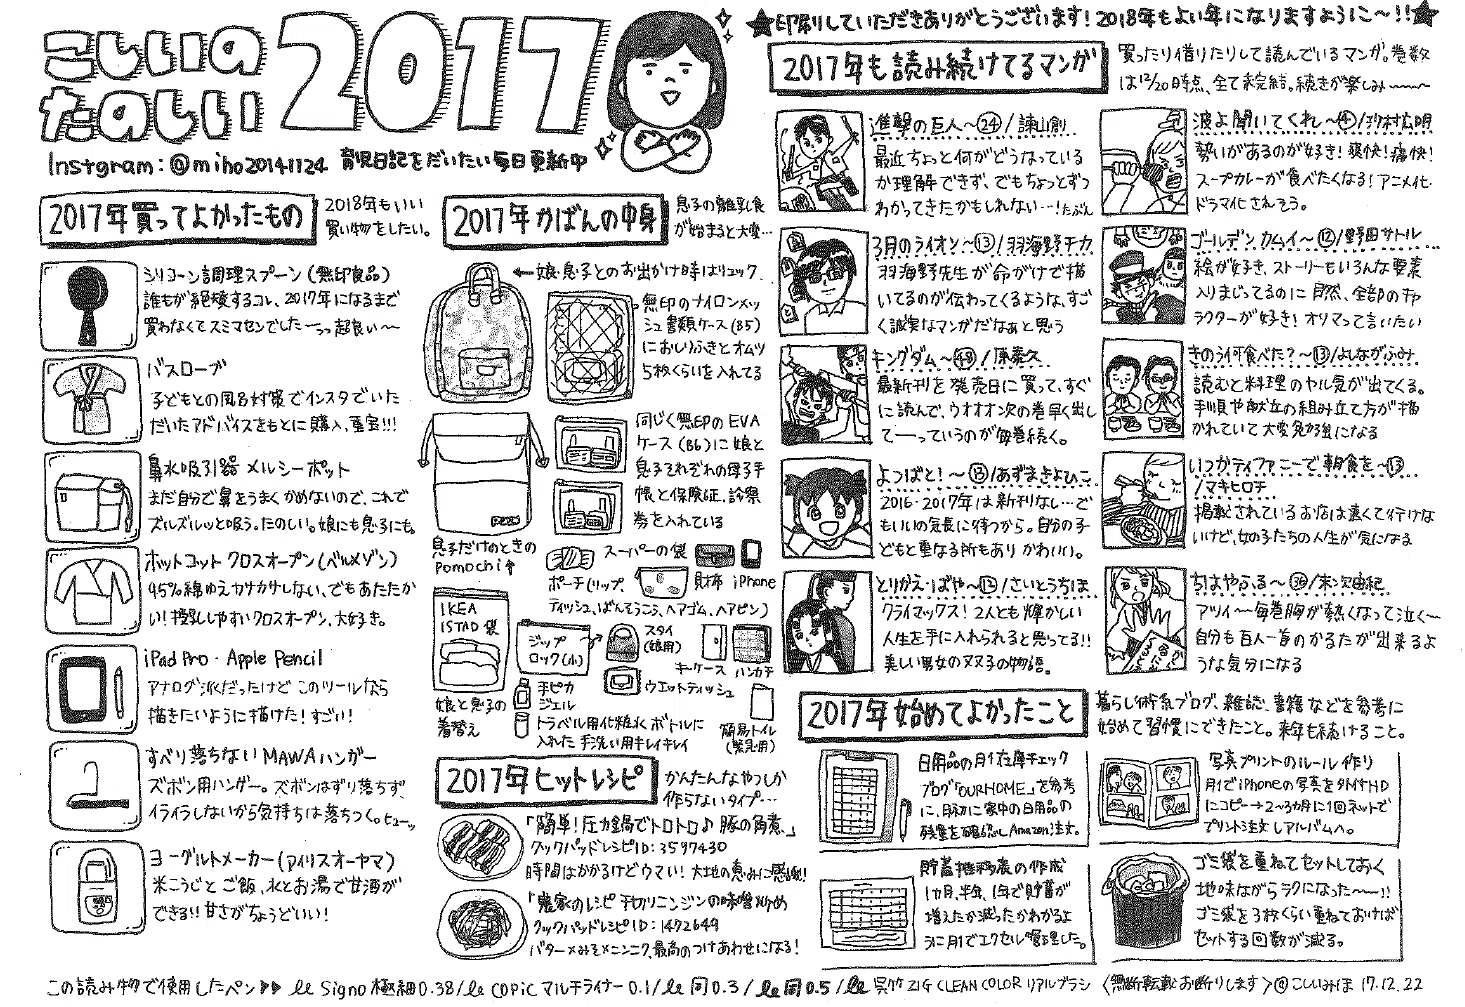 こしいの
たのしい
2017
Instgram:@miho20141124 育児日記をだいたい毎日更新中
★印刷していただきありがとうございます!2018年もよい年になりますように〜!!★
2017年買ってよかったもの
2018年もいい
買い物をしたい。
シリコーン調理スプーン(無印良品)
誰もが絶賛するコレ、2017年になるまで
買わなくてスミマセンでした──っ超良い〜
バスローブ
子どもとの風呂対策でインスタでいた
だいたアドバイスをもとに購入、重宝!!!
鼻水吸引器 メルシーポット
まだ自分で鼻をうまくかめないので、これで
ズルズルッと吸う。たのしい。娘にも息子にも。
ホットコット クロスオープン(ベルメゾン)
95%綿ゆえカサカサしない、でもあたたか
い!授乳しやすいクロスオープン、大好き。
iPad Pro・Apple Pencil
アナログ派だったけど このツールなら
描きたいように描けた!すごい!
すべり落ちない MAWAハンガー
ズボン用ハンガー。ズボンはずり落ちず、
イライラしないから気持ちは落ちつく。ヒューッ
ヨーグルトメーカー(アイリスオーヤマ)
米こうじと ご飯、水とお湯で甘酒が
できる!!甘さがちょうどいい!
2017年かばんの中身
息子の離乳食
が始まると大変…
←娘・息子とのお出かけ時はリュック
無印のナイロンメッ
シュ書類ケース(B5)
におしりふきとオムツ
5枚くらいを入れてる
同じく無印のEVA
ケース(B6)に娘と
息子それぞれの母子手
帳と保険証、診察
券を入れている
息子だけのときの
pomochi↑
スーパーの袋
ポーチ(リップ、
ティッシュ、ばんそうこう、ヘアゴム、ヘアピン)
財布 iPhone
IKEA
ISTAD袋
娘と息子の
着替え
ジップ
ロック(小)
スタイ
(娘用)
キーケース ハンカチ
手ピカ
ジェル
ウエットティッシュ
トラベル用化粧水ボトルに
入れた 手洗い用キレイキレイ
簡易トイレ
(緊急用)
2017年ヒットレシピ
かんたんなやつしか
作らないタイプ…
「簡単!圧力鍋でトロトロ♪ 豚の角煮」
クックパッドレシピID:3597430
時間はかかるけどウマい!大地の恵みに感謝!
「農家のレシピ 千切りニンジンの味噌炒め
クックパッドレシピID:1492649
バター×みそ×ニンニク、最高のつけあわせになる!
2017年も読み続けてるマンガ
買ったり借りたりして読んでいるマンガ。巻数
は12/20時点、全て未完結。続きが楽しみ〜〜
進撃の巨人〜24/諫山創
最近ちょっと何がどうなっている
か理解できず、でもちょっとずつ
わかってきたかもしれない…!たぶん
3月のライオン〜13/羽海野チカ
羽海野先生が命がけで描
いてるのが伝わってくるような、すご
く誠実なマンガだなぁと思う
キングダム〜48/原泰久
最新刊を発売日に買って、すぐ
に読んで、ウオオオ次の巻早く出し
て──っていうのが毎巻続く。
よつばと!〜13/あずまきよひこ
2016・2017年は新刊なし…で
もいいの気長に待つから。自分の子
どもと重なる所もあり かわいい。
とりかえ・ばや〜12/さいとうちほ
クライマックス!2人とも輝かしい
人生を手に入れられると思ってる!!
美しい男女のヌヌ子の物語。
波よ聞いてくれ〜4/沙村広明
勢いがあるのが好き!爽快!痛快!
スープカレーが食べたくなる!アニメ化・
ドラマ化されそう。
ゴールデンカムイ〜12/野田サトル
絵が好き、ストーリーもいろんな要素
入りまじってるのに自然、全部のキャ
ラクターが好き!オソマって言いたい
きのう何食べた?〜13/よしながふみ
読むと料理のヤル気が出てくる。
手順や献立の組み立て方が描
かれていて大変勉強になる
いつかティファニーで朝食を〜13
/マキヒロチ
掲載されているお店は遠くて行けな
いけど、女の子たちの人生が気になる
ちはやふる〜36/末次由紀
アツイ〜毎巻胸が熱くなって泣く〜
自分も百人一首のかるたが出来るよ
うな気分になる
2017年始めてよかったこと
暮らし術系ブログ、雑誌、書籍などを参考に
始めて習慣にできたこと。来年も続けること。
日用品の月1在庫チェック
ブログ「OURHOME」を参考
に、月初に家中の日用品の
残量を確認しAmazon注文。
写真プリントのルール作り
月1でiPhoneの写真を外付HD
にコピー→2〜3か月に1回ネットで
プリント注文しアルバムへ。
貯蓄推移表の作成
1ヶ月、半年、1年で貯蓄が
増えたか減ったかわかるよ
うに月1でエクセル管理した。
ゴミ袋を重ねてセットしておく
地味ながらラクになった〜〜!!
ゴミ袋を3枚くらい重ねておけば
セットする回数が減る。
この読み物で使用したペン▶▶ le Signo 極細0.38/le COPIC マルチライナー0.1/le 同0.3/le 同0.5/le 呉竹 ZIG CLEAN COLOR リアルブラシ 〈無断転載お断りします〉@こしいみほ 17.12.22